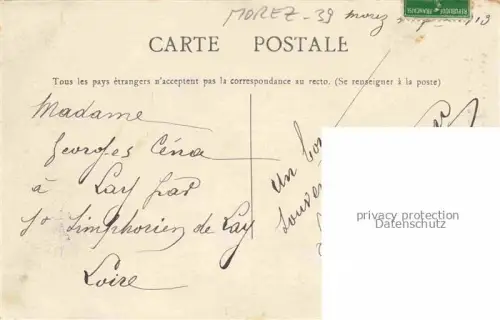 MOREZ - 39 morez
REPUBLIQUE FRANCAISE
CARTE POSTALE
Tous les pays étrangers n'acceptent pas la correspondance au recto. (Se renseigner à la poste)
Madame
Georges Céna
à Lay par
St Simphorien de Lay
Loire
Un bon
souve
privacy protection
Datenschutz